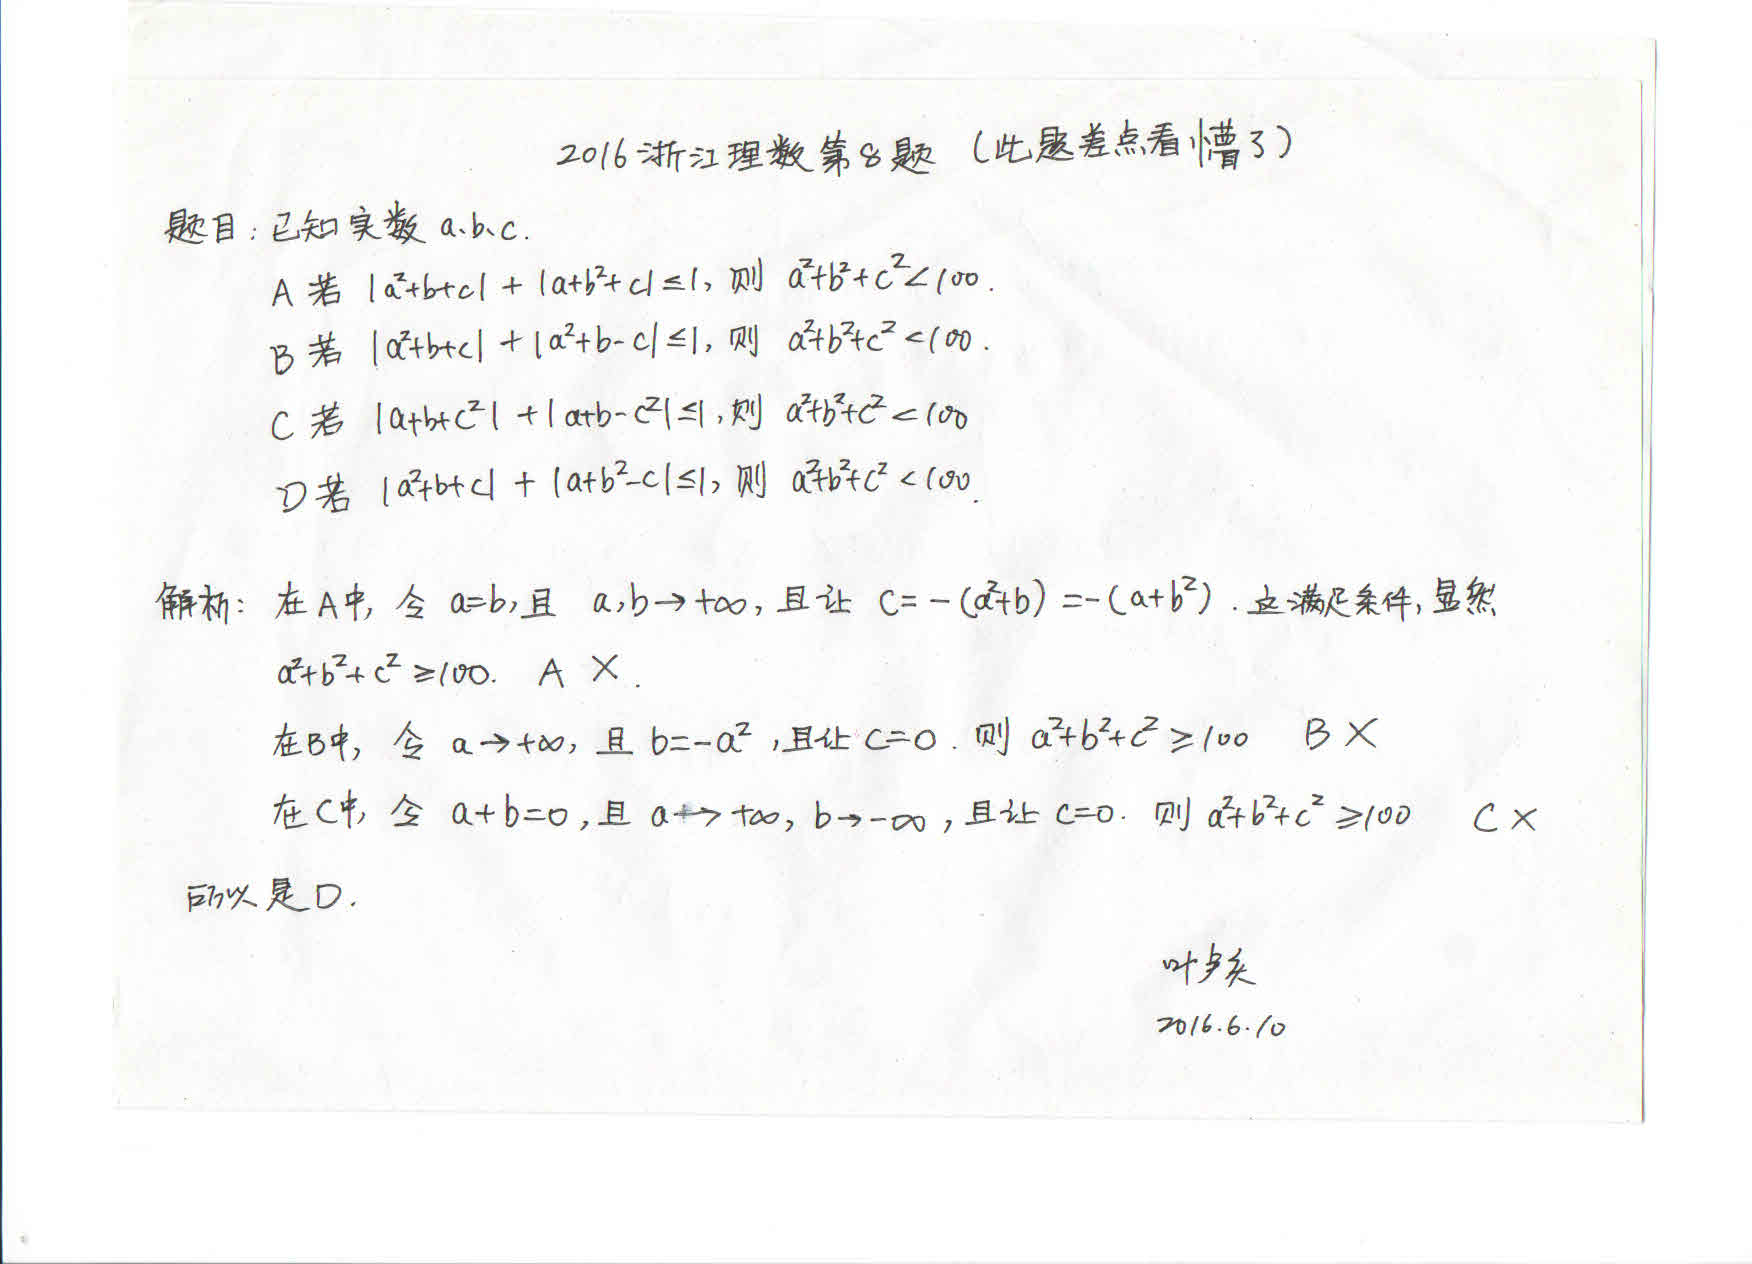 2016浙江理数第8题 (此题差点看懵了)
题目:已知实数a、b、c.
A 若 |a²+b+c| + |a+b²+c| ≤1, 则 a²+b²+c²<100.
B 若 |a²+b+c| + |a²+b-c| ≤1, 则 a²+b²+c²<100.
C 若 |a+b+c²| + |a+b-c²| ≤1, 则 a²+b²+c²<100
D 若 |a²+b+c| + |a+b²-c| ≤1, 则 a²+b²+c²<100.
解析: 在A中, 令 a=b, 且 a,b→+∞, 且让 c=-(a²+b)=-(a+b²). 这满足条件, 显然
a²+b²+c²≥100. A ×.
在B中, 令 a→+∞, 且 b=-a², 且让 c=0. 则 a²+b²+c²≥100 B ×
在C中, 令 a+b=0, 且 a→+∞, b→-∞, 且让 c=0. 则 a²+b²+c²≥100 C ×
所以是D.
叶
2016.6.10